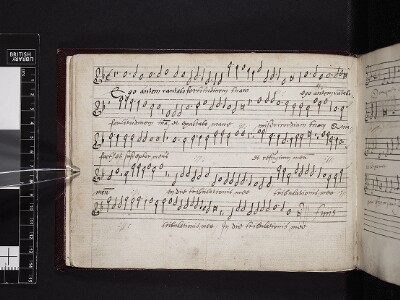 BRITISH LIBRARY
Ego autem cantabo fortitudinem tuam ego autem cantabo
fortitudinem tuã, et exaltabo mane misericordiam tuam Quia
factus es susceptor meus et refugium meũ
meũ in die tribulationis mee tribulationis mee
ij: tribulationis mee in die tribulationis mee